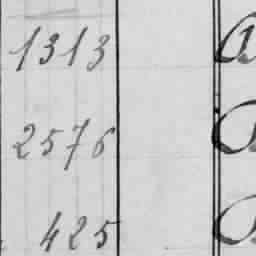 1313
2576
425